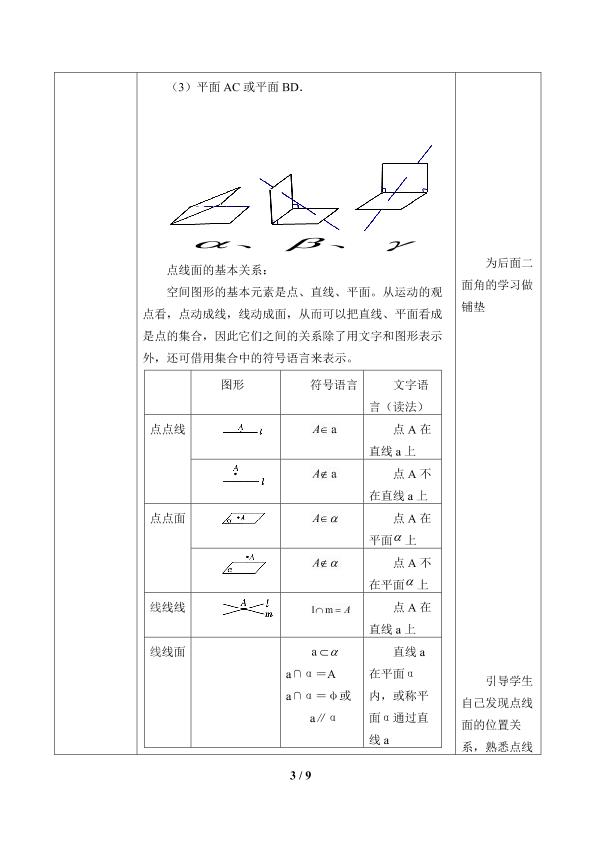 （3）平面 AC 或平面 BD．
α、β、γ
点线面的基本关系：
空间图形的基本元素是点、直线、平面。从运动的观
点看，点动成线，线动成面，从而可以把直线、平面看成
是点的集合，因此它们之间的关系除了用文字和图形表示
外，还可借用集合中的符号语言来表示。
图形
符号语言
文字语
言（读法）
点点线
A
l
A∈ a
点 A 在
直线 a 上
A
l
A∉ a
点 A 不
在直线 a 上
点点面
α
A
A∈ α
点 A 在
平面α 上
A
α
A∉ α
点 A 不
在平面α 上
线线线
A
l
m
l∩m = A
点 A 在
直线 a 上
线线面
a⊂α
a∩α＝A
a∩α＝φ或
a∥α
直线 a
在平面α
内，或称平
面α通过直
线 a
为后面二
面角的学习做
铺垫
引导学生
自己发现点线
面的位置关
系，熟悉点线
3 / 9